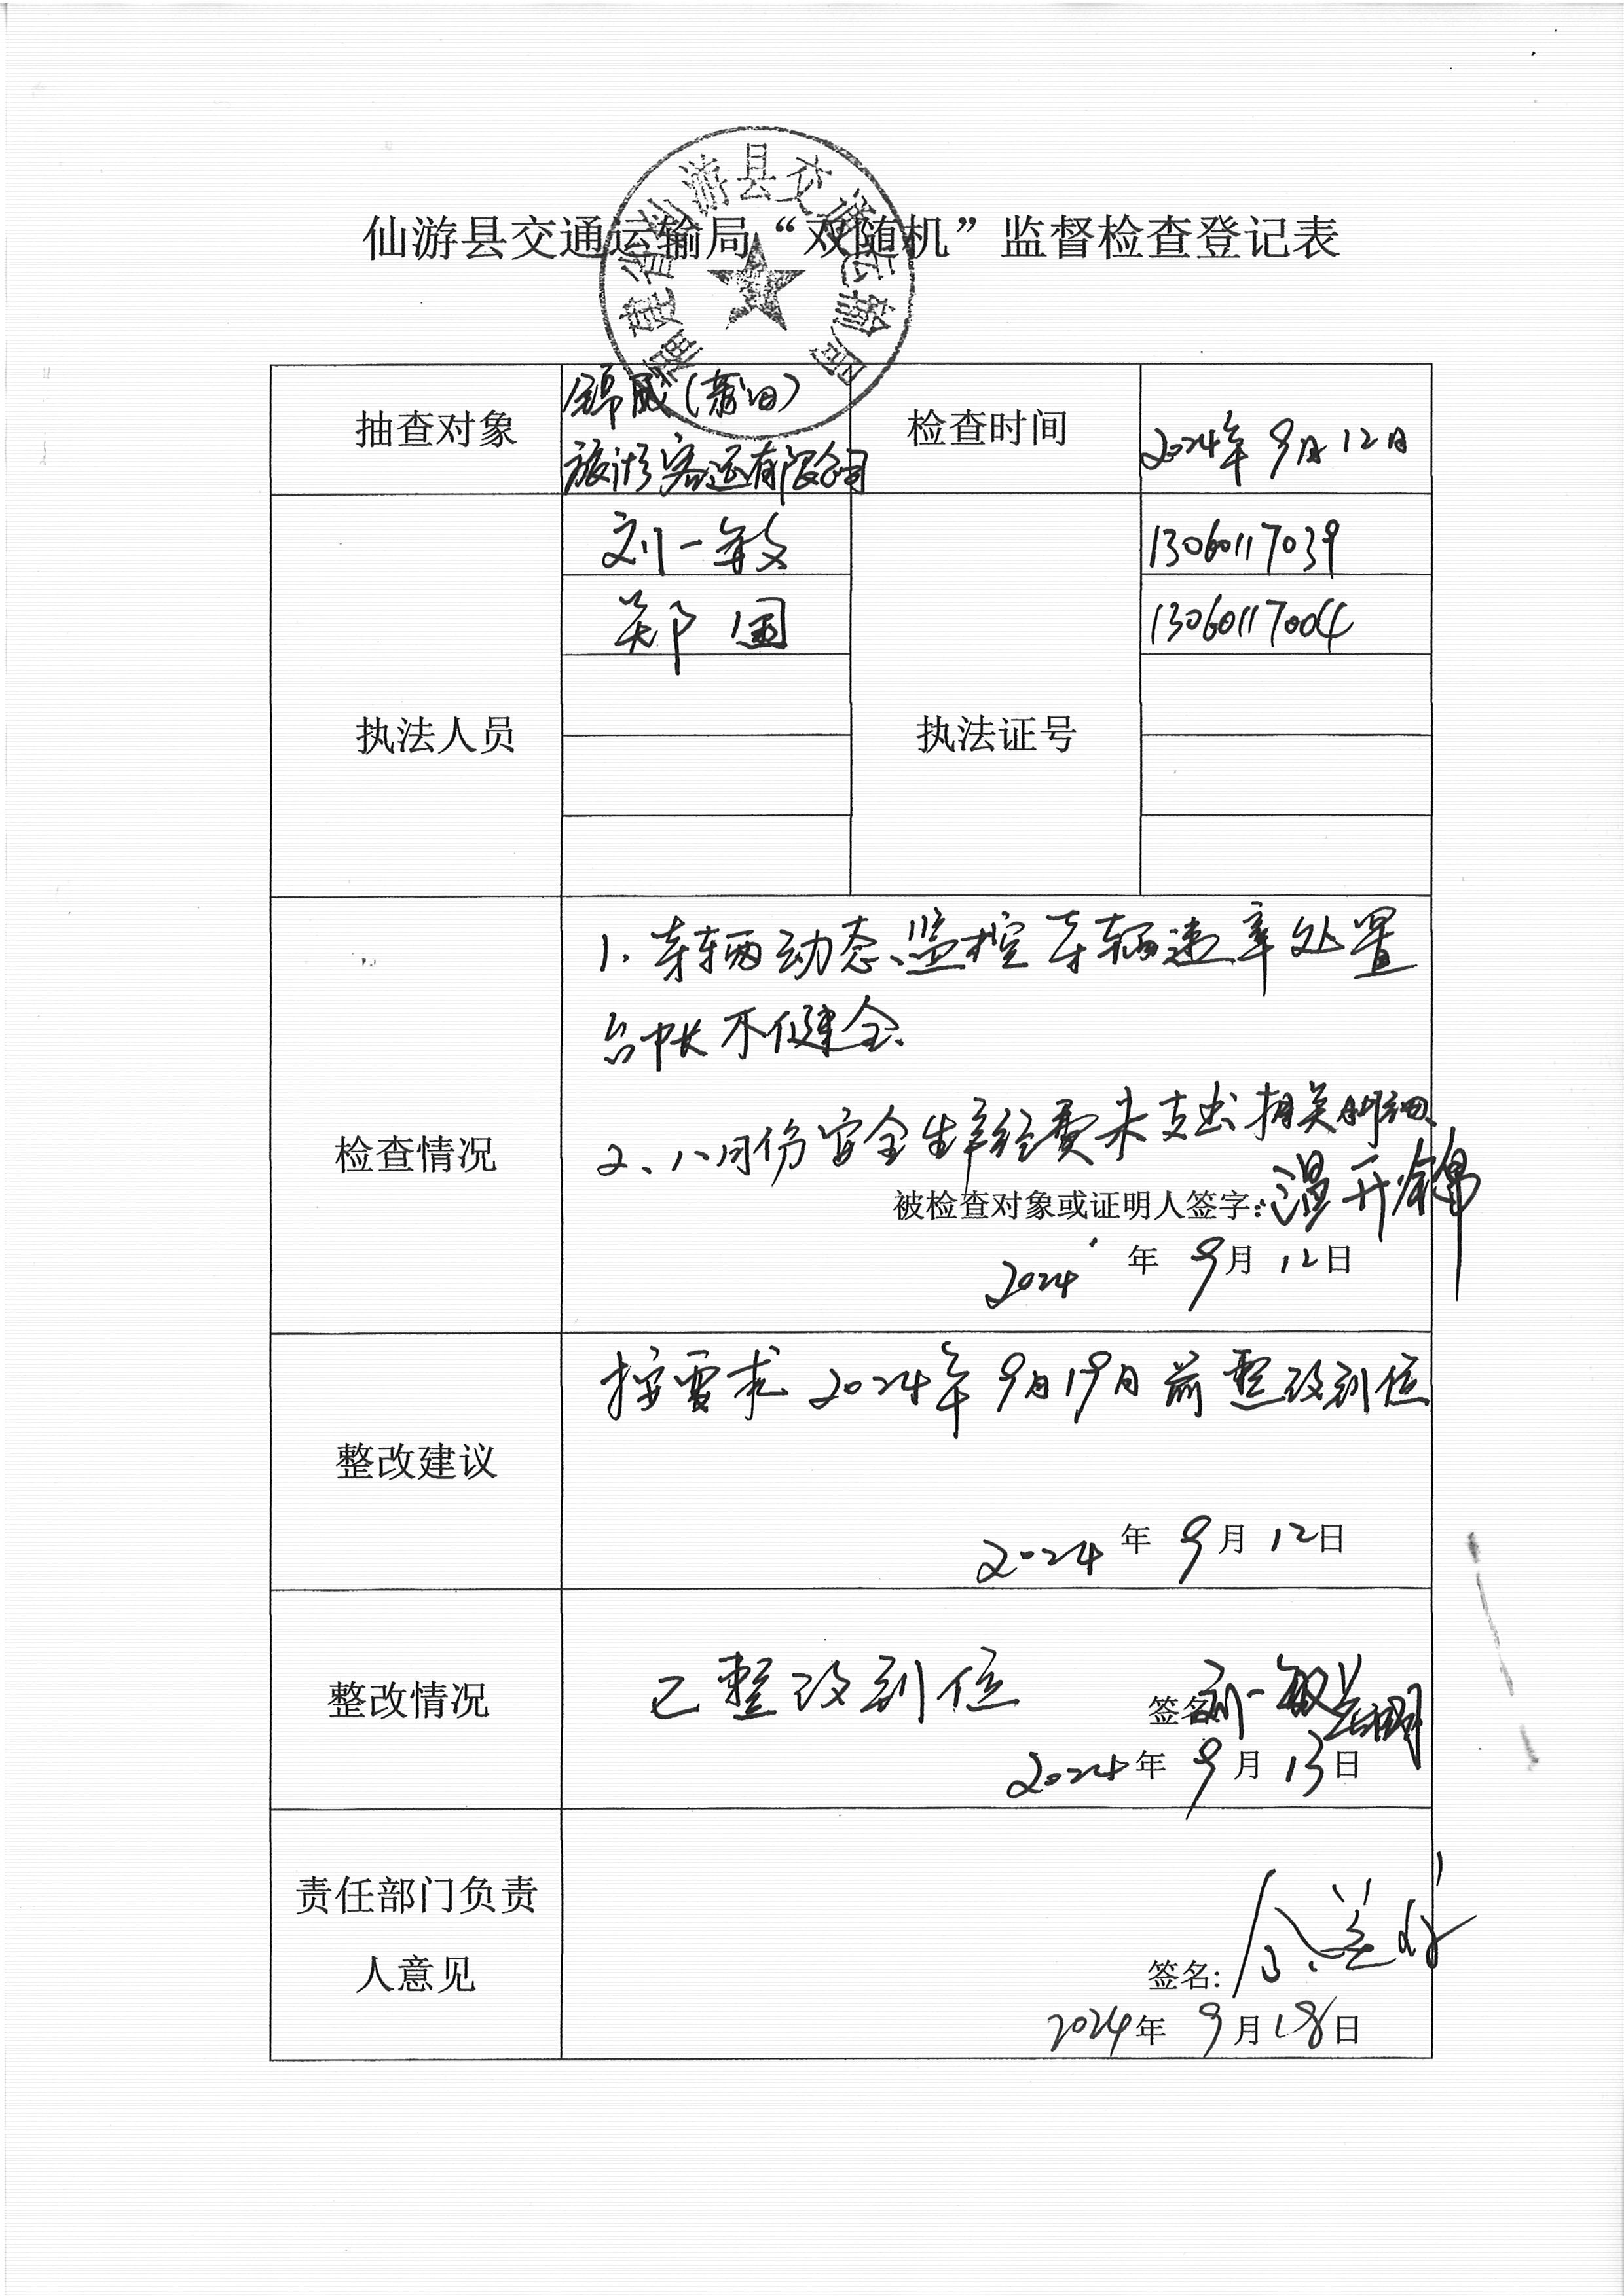 仙游县交通运输局“双随机”监督检查登记表
福建省仙游县交通运输局
抽查对象
锦威(莆田)
旅游客运有限公司
检查时间
2024年9月12日
执法人员
刘一敏
13060117039
郑国
13060117004
执法证号
1、车辆动态监控车辆违章处置
台帐不健全、
检查情况
2、八月份安全生产经费未支出相关明细、
被检查对象或证明人签字:温开锦
2024年9月12日
按要求2024年9月19日前整改到位
整改建议
2024年9月12日
整改情况
已整改到位
签名 刘一敏
2024年9月13日
责任部门负责
人意见
签名:
2024年9月18日